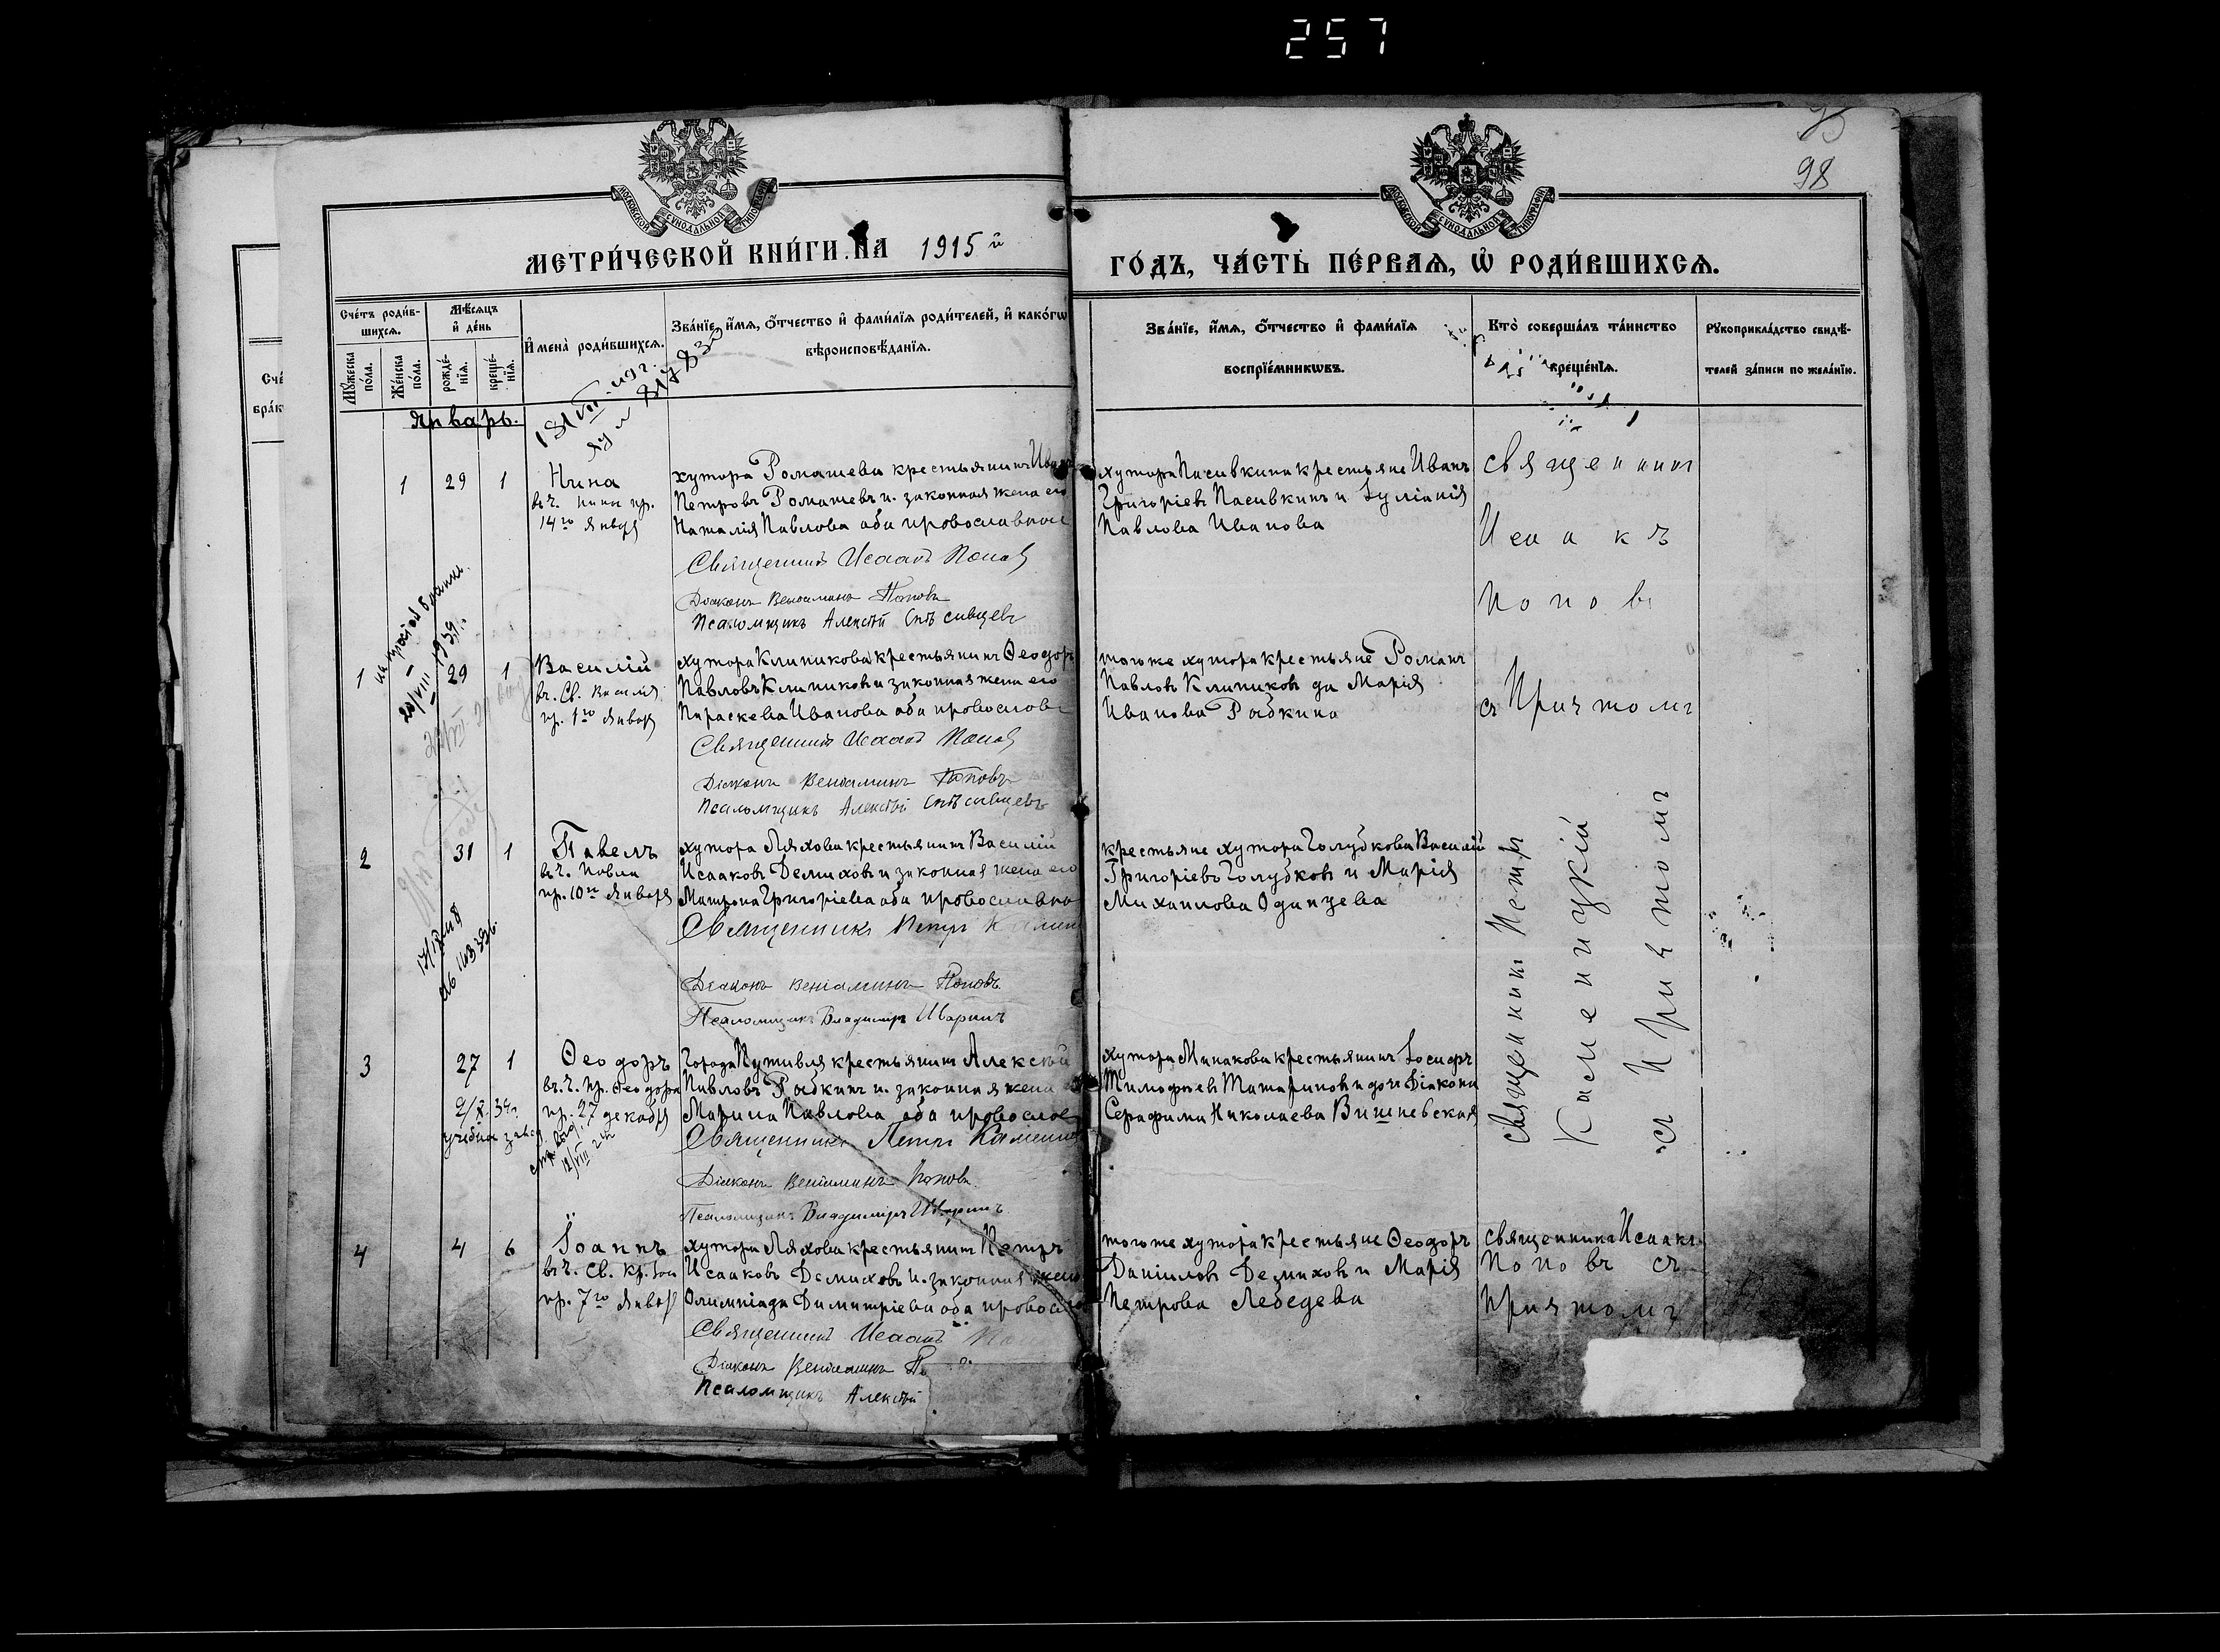 257
98
МОСКОВСКОЙ СѴНОДАЛЬНОЙ ТИПОГРАФІИ
МОСКОВСКОЙ СѴНОДАЛЬНОЙ ТИПОГРАФІИ
МЕТРИ́ЧЕСКОЙ КНИ́ГИ НА 1915й
ГО́ДЪ, ЧА́СТЬ ПЕ́РВАѦ, Ѡ҆ РОДИ́ВШИХСѦ.
Сче́тъ роди́в-
шихсѧ.
Мѣ́сѧцъ
и҆ де́нь
Мꙋ́жеска
по́ла.
Же́нска
по́ла.
рожде́-
нїѧ.
креще́-
нїѧ.
И҆мена̀ роди́вшихсѧ.
Зва́нїе, и҆́мѧ, ѻ҆́тчество и҆ фами́лїѧ роди́телей, и҆ како́гѡ
вѣроисповѣ́данїѧ.
Зва́нїе, и҆́мѧ, ѻ҆́тчество и҆ фами́лїѧ
воспрїе́мникѡвъ.
Кто̀ соверша́лъ та́инство
креще́нїѧ.
Рꙋкоприкла́дство свидѣ́-
телей за́писи по жела́нїю.
Январь.
1 29 1
Нина
въ ч. Нины пр.
14го Января
хутора Ромашева крестьянинъ Иванъ
Петровъ Ромашевъ и законная жена его
Наталія Павлова оба православные
Священникъ Исаакъ Поповъ
Діаконъ Веніаминъ Поповъ
Псаломщикъ Алексѣй
хутора Пасивкина крестьяне Иванъ
Григоріевъ Пасивкинъ и Іуліанія
Павлова Иванова
Священникъ
Исаакъ
Поповъ
1 29 1
20/VIII 1939г.
Василій
въ ч. Св. Василія
пр. 1го Января
хутора Клипикова крестьянинъ Ѳеодоръ
Павловъ Клипиковъ и законная жена его
Параскева Иванова оба православн
Священникъ Исаакъ Поповъ
Діаконъ Веніаминъ Поповъ
Псаломщикъ Алексѣй
тогоже хутора крестьяне Романъ
Павловъ Клипиковъ да Марія
Иванова Рябкина
съ Причтомъ
2 31 1
Павелъ
въ ч. Павла
пр. 10го Января
хутора Ляхова крестьянинъ Василій
Исааковъ Демиховъ и законная жена его
Матрона Григоріева оба православные
Священникъ Петръ
Діаконъ Веніаминъ Поповъ
Псаломщикъ Владиміръ
крестьяне хутора Голубкова Василій
Григоріевъ Голубковъ и Марія
Михаилова Одинцева
Священникъ Петръ
Каменицкій
съ Причтомъ
3 27 1
Ѳеодоръ
въ ч. пр. Ѳеодора
пр. 27 декабря
Города Путивля крестьянинъ Алексѣй
Павловъ Рябкинъ и законная жена
Марина Павлова оба православ
Священникъ Петръ
Діаконъ Веніаминъ Поповъ
Псаломщикъ Владиміръ
хутора Минакова крестьянинъ Іосифъ
Тимофѣевъ Татариновъ и дочь Діакона
Серафима Николаева Вишневская
4 4 6
Іоаннъ
въ ч. Св. Кр. Іоан
пр. 7го Января
хутора Ляхова крестьянинъ Петръ
Исааковъ Демиховъ и законная жена
Олимпіада Димитріева оба православ
Священникъ Исаакъ По
Діаконъ Веніаминъ По
Псаломщикъ Алексѣй
тогоже хутора крестьяне Ѳеодоръ
Даніиловъ Демиховъ и Марія
Петрова Лебедева
Священникъ Исаакъ
Поповъ съ
Причтомъ